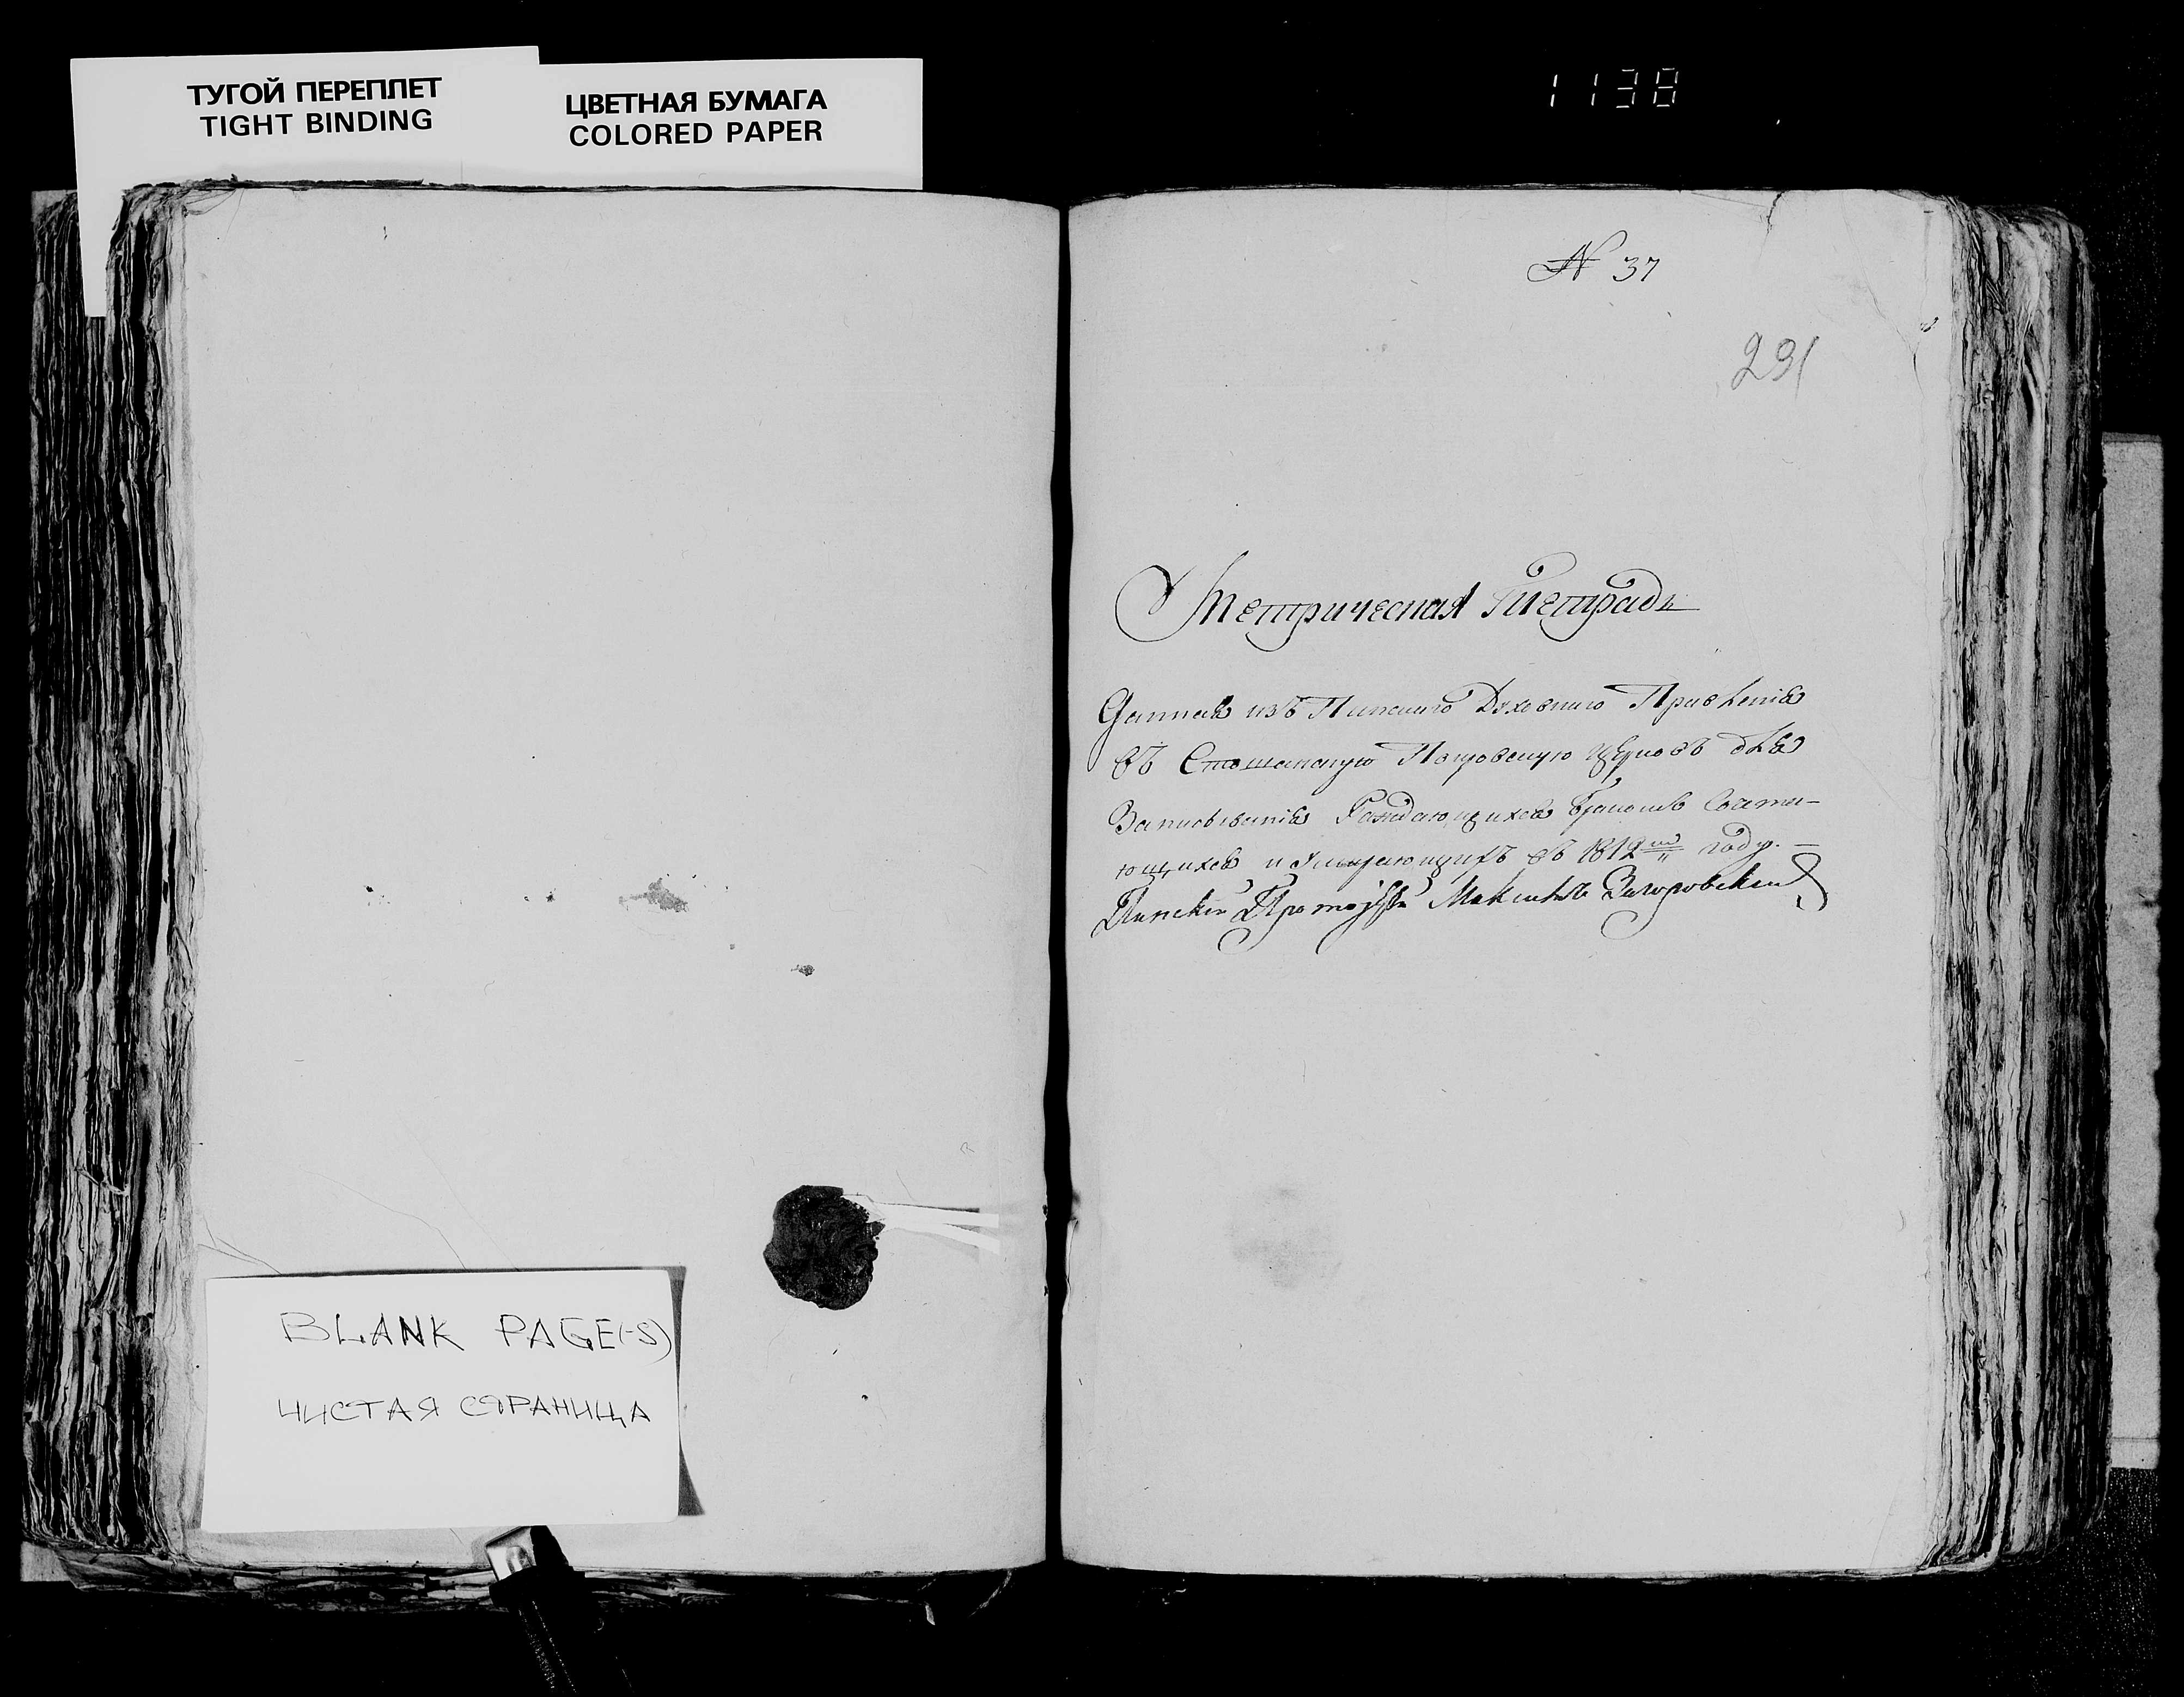 ТУГОЙ ПЕРЕПЛЕТ
TIGHT BINDING
ЦВЕТНАЯ БУМАГА
COLORED PAPER
1138
N 37
291
Метрическая Тетрадь
Данная изъ Пинскаго Духовнаго Правленія
въ Стошанскую Покровскую Церковъ для
Записыванія Раждающихся Бракомъ Сочета-
ющихся и Умирающихъ въ 1812 году. —
Пинскій Максимъ
BLANK PAGE(-S)
ЧИСТАЯ СТРАНИЦА